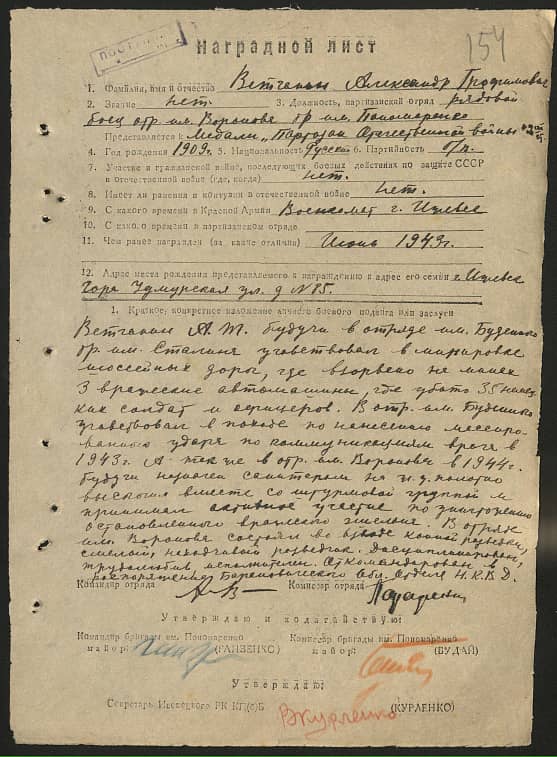 154
Наградной лист
1. Фамилия, имя и отчество Александр Трофимович
2. Звание нет. 3. Должность, партизанский отряд рядовой
боец отр. им. Воронова бр. им. Пономаренко
Представляется к Медали „Партизан Отечественной войны"
4. Год рождения 1909г. 5. Национальность русский 6. Партийность б/п.
7. Участие в гражданской войне, последующих боевых действиях по защите СССР
в отечественной войне (где, когда) нет.
8. Имеет ли ранения и контузии в отечественной войне нет.
9. С какого времени в Красной Армии Военкомат г.
10. С какого времени в партизанском отряде
11. Чем ранее награжден (за какие отличия) Июнь 1943г.
12. Адрес места рождения представляемого к награждению и адрес его семьи г.
ул. д №85.
1. Краткое, конкретное изложение личного боевого подвига или заслуги
А.Т. будучи в отряде им. Буденного
бр. им. Сталина участвовал в минировке
шоссейных дорог, где взорвано не менее
3 вражеские автомашины, где убито 35
солдат и офицеров. В отр. им.
участвовал в походе по нанесению
удара по коммуникациям врага в
1943г. А также в отр. им. Воронова в 1944г.
будучи на ж.д. полотно
вместе со штурмовой группой и
принимал активное участие по уничтожению
остановленного вражеского эшелона. В отряде
им. Воронова состоял во взводе конной разведки,
смелый, находчивый разведчик. Дисциплинирован,
трудолюбив, исполнителен. Откомандирован в
распоряжение Барановического Обл. Отдела Н.К.В.Д.
Командир отряда Комиссар отряда
Утверждаю и ходатайствую:
Командир бригады им. Пономаренко Комиссар бригады им. Пономаренко
майор: (ГАНЗЕНКО) майор: (БУДАЙ)
Утверждаю:
Секретарь Ивенецкого РК КП(б)Б ВКурленко (КУРЛЕНКО)